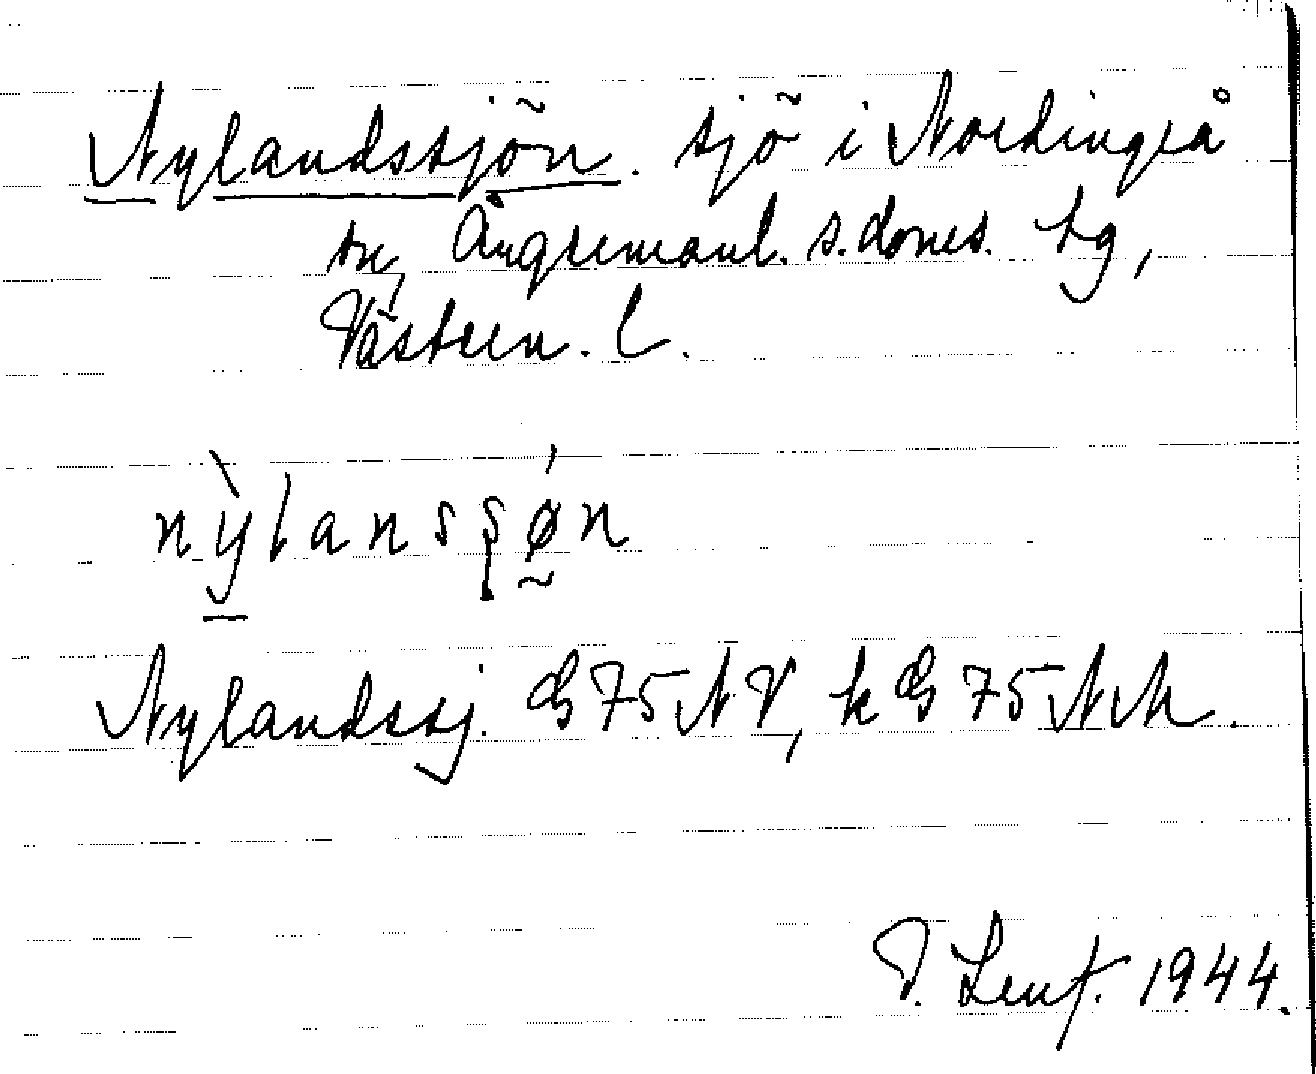 Nylandssjön. sjö i Nordingrå
sn, Ångermanl. s. doms. tg,
Västern. l.
nỳlansşǿn
Nylandssj. G 75 NV, k G 75 NM.
1944.